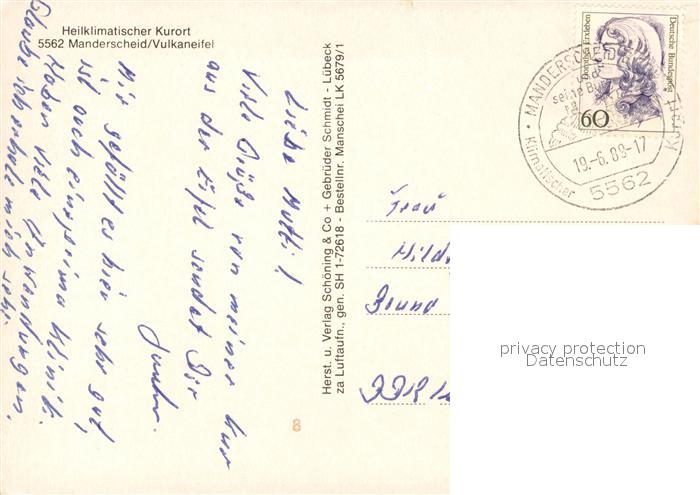 Heilklimatischer Kurort
5562 Manderscheid/Vulkaneifel
Liebe Mutti!
Viele Grüße von meiner Kur
aus der Eifel sendet Dir
Mir gefällt es hier sehr gut,
ist auch eine prima Klinik.
Haben viele Anwendungen.
Glaube ich erhole mich sehr.
Herst. u. Verlag Schöning & Co + Gebrüder Schmidt - Lübeck
za Luftaufn., gen. SH 1-72618 - Bestellnr. Manschei LK 5679/1
8
Frau
Hild
Deutsche Bundespost
60
MANDERSCHEID
und
seine
Klimatischer
Kurort
19.-6.89-17
5562
DDR
privacy protection
Datenschutz